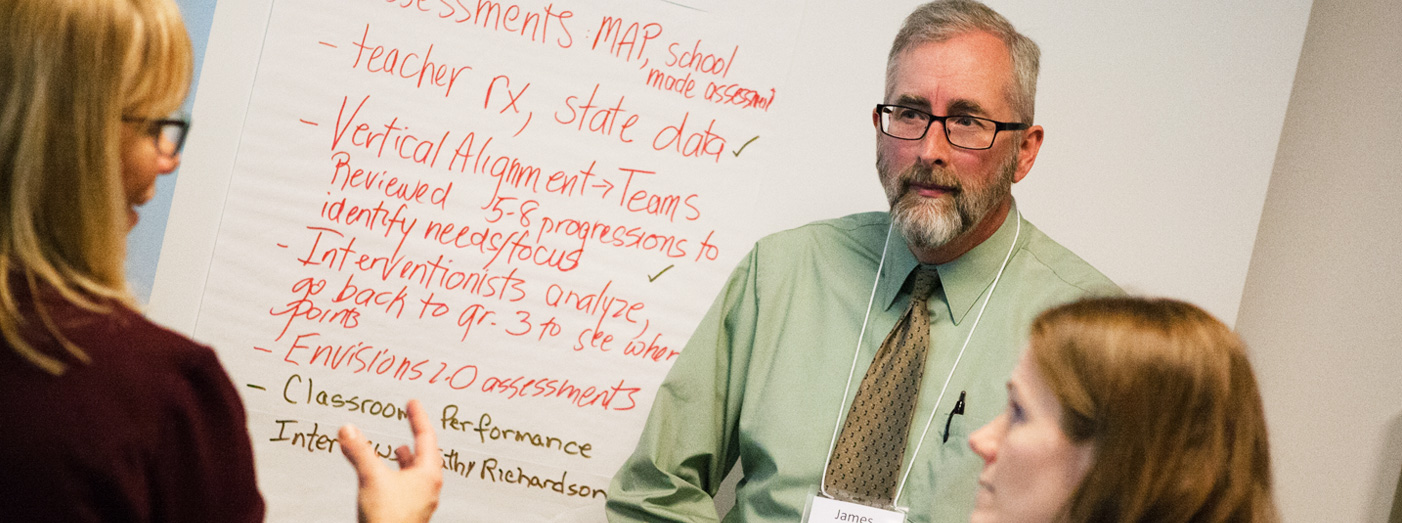 assessments: MAP, school
made assessmt
- teacher rx, state data ✓
- Vertical Alignment → Teams
Reviewed 5-8 progressions to
identify needs/focus
- Interventionists analyze, ✓
go back to gr. 3 to see wher
points
- Envisions 2.0 assessments
- Classroom Performance
Richardson
James